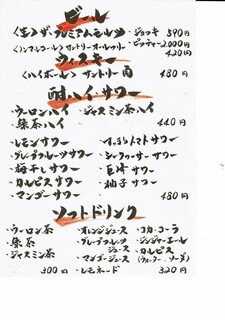 ビール
〈生〉ザ・プレミアムモルツ ・ジョッキ 590円
・ピッチャー 2,000円
〈ノンアルコール〉サントリーオールフリー 420円
ウィスキー
〈ハイボール〉サントリー角 480円
酎ハイ・サワー
・ウーロンハイ ・ジャスミン茶ハイ
・緑茶ハイ 440円
・レモンサワー ・すっきりトマトサワー
・グレープフルーツサワー ・シークヮーサーサワー
・梅干しサワー ・巨峰サワー
・カルピスサワー ・柚子サワー
・マンゴーサワー 480円
ソフトドリンク
・ウーロン茶 ・オレンジジュース ・コカ・コーラ
・緑茶 ・グレープフルーツジュース ・ジンジャーエール
・ジャスミン茶 ・マンゴージュース ・カルピス
(ウォーター・ソーダ)
300円 ・レモネード 320円